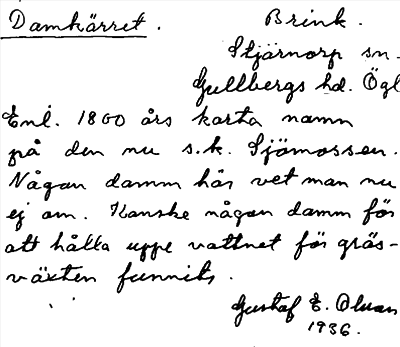 Damkärret. Brink.
Stjärnorp sn.
Gullbergs hd. Ögl
Enl. 1800 års karta namn
på den nu s.k. Sjömossen.
Någon damm här vet man nu
ej om. Kanske någon damm för
att hålla uppe vattnet för gräs-
växten funnits.
Gustaf E. Olson
1936.